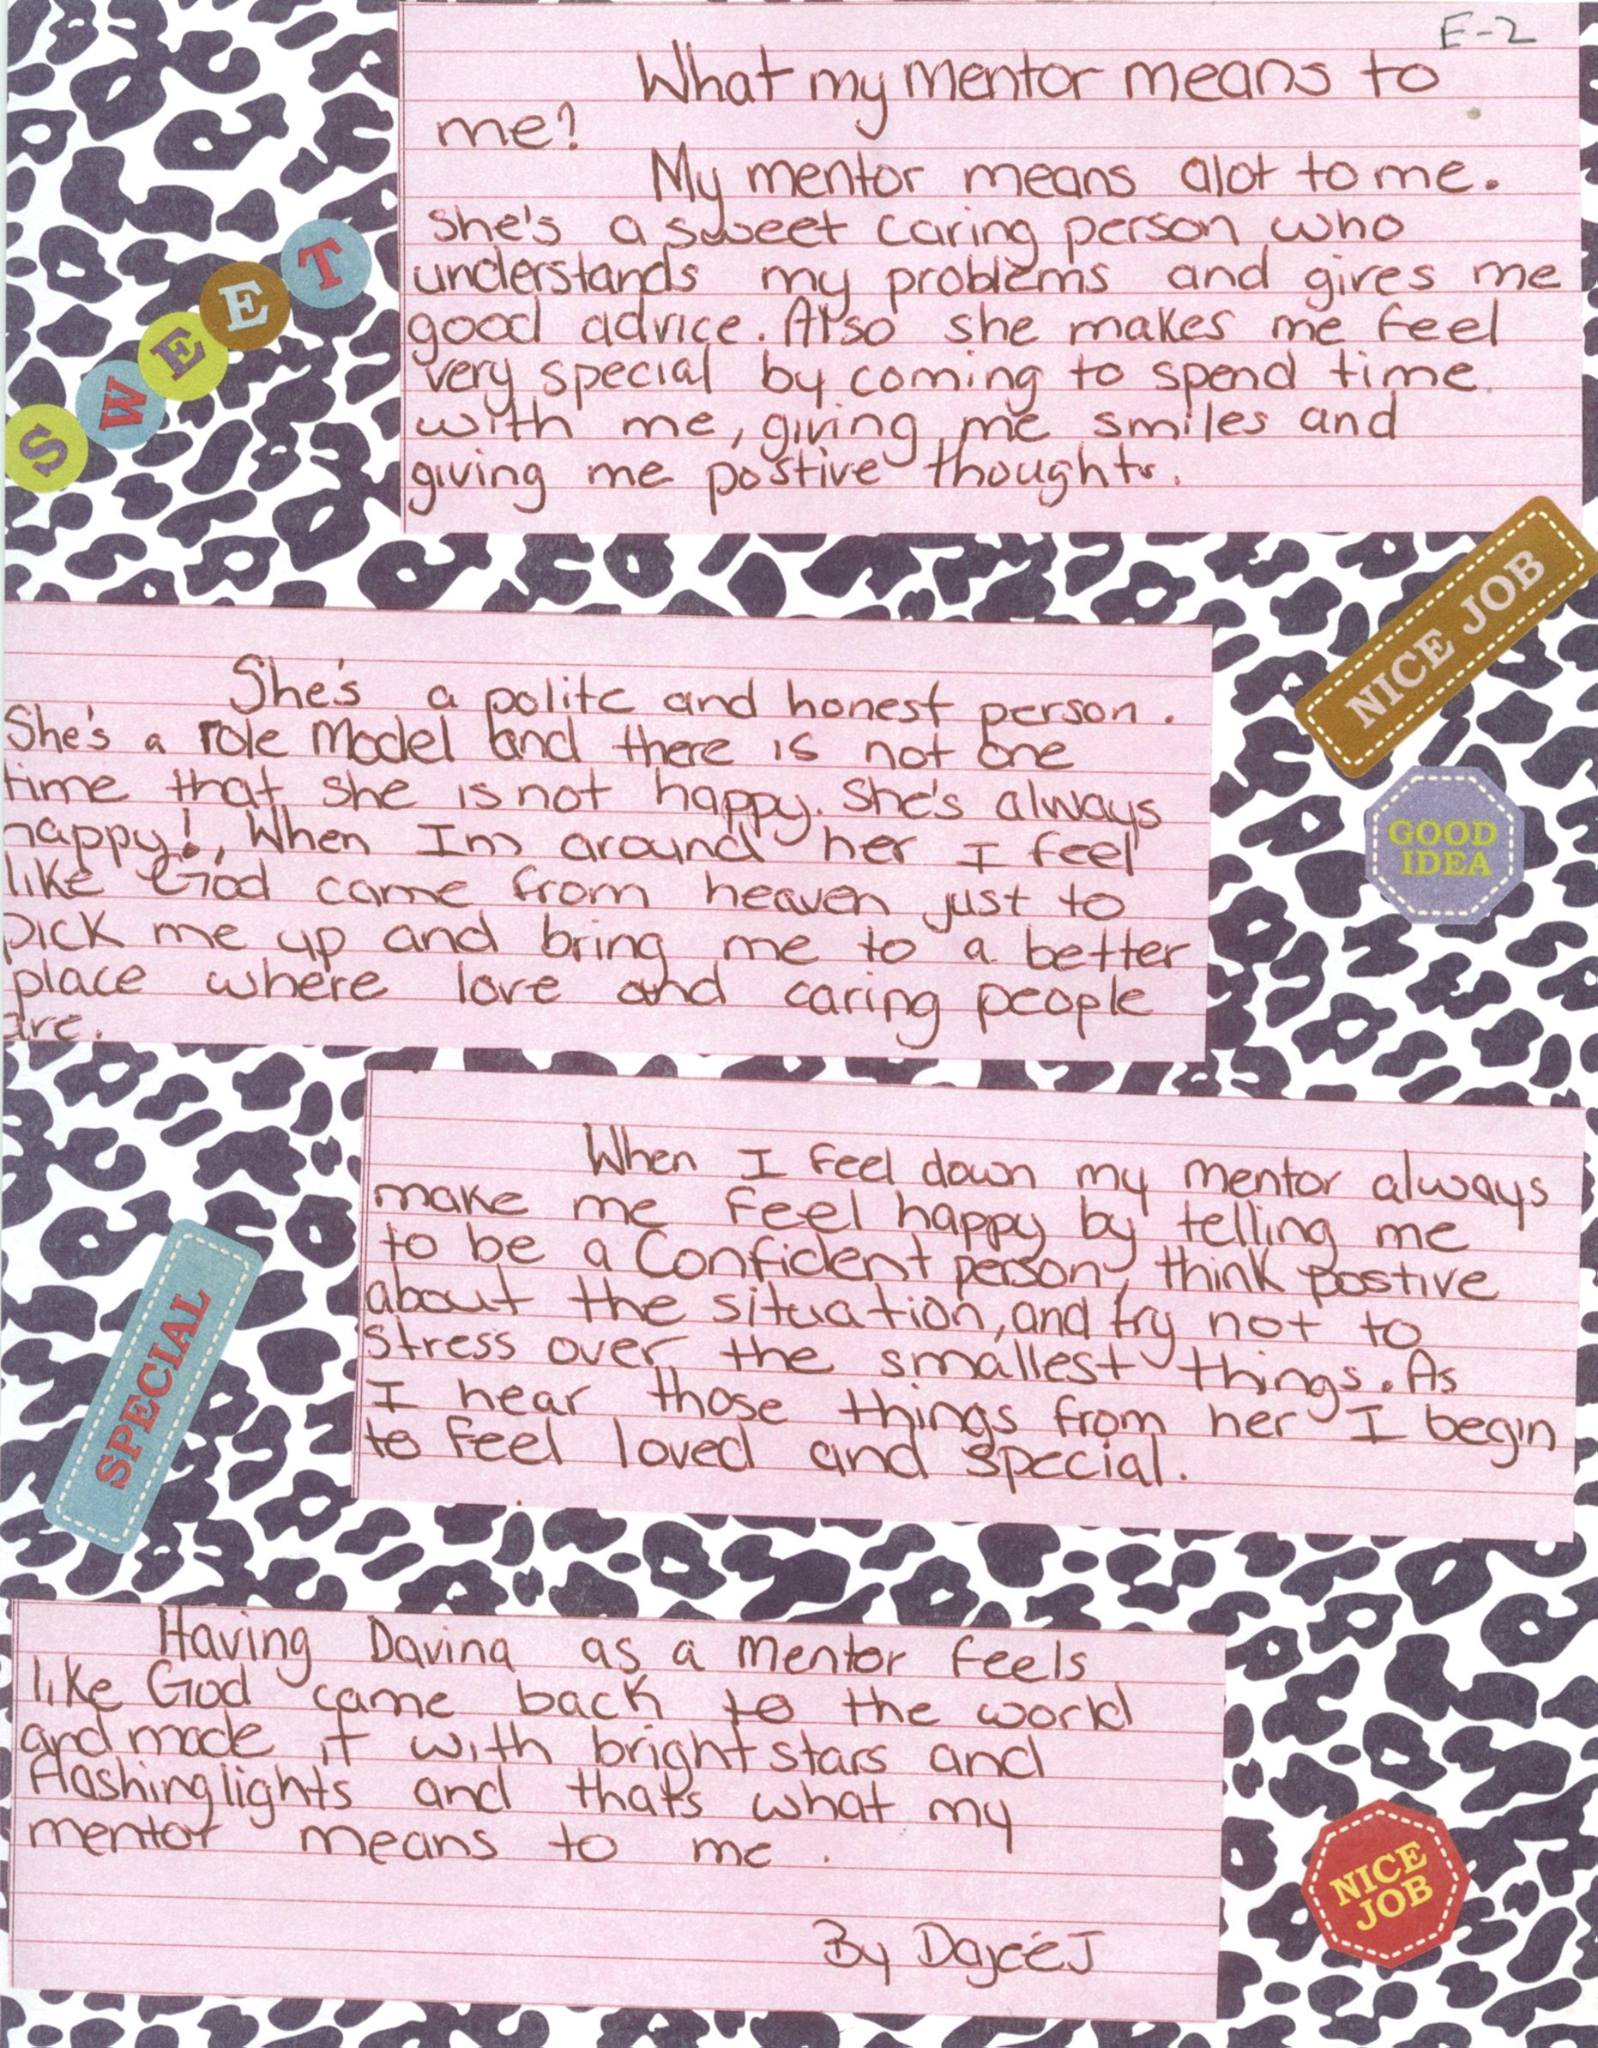 E-2
What my mentor means to
me?
My mentor means alot to me.
She's a sweet caring person who
understands my problems and gives me
good advice. Also she makes me feel
very special by coming to spend time
with me, giving me smiles and
giving me postive thoughts.
SWEET
NICE JOB
She's a polite and honest person.
She's a role Model and there is not one
time that she is not happy. She's always
happy!, When Im around her I feel
like God came from heaven just to
pick me up and bring me to a better
place where love and caring people
are.
GOOD
IDEA
When I feel down my mentor always
make me feel happy by telling me
to be a Confident person, think postive
about the situation, and try not to
stress over the smallest things. As
I hear those things from her I begin
to feel loved and special.
SPECIAL
Having Davina as a mentor feels
like God came back to the world
and made it with bright stars and
flashing lights and thats what my
mentor means to me.
By Dajeé J
NICE
JOB